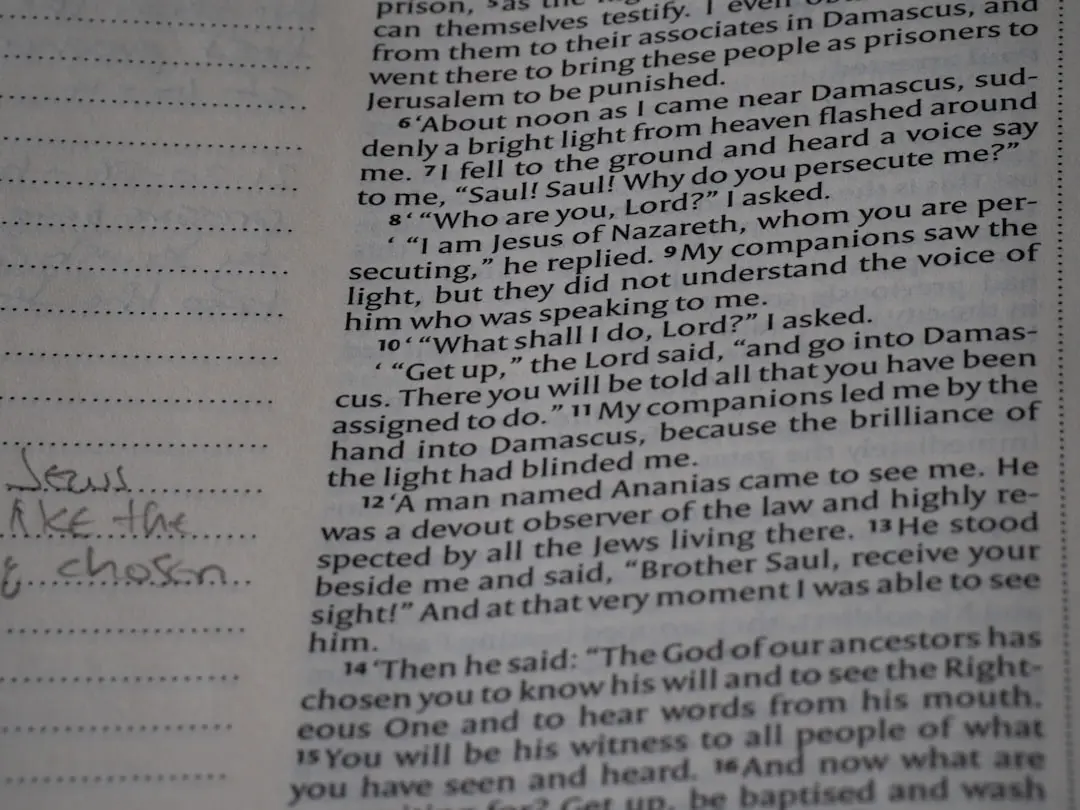 prison, ⁵as the
can themselves testify. I even
from them to their associates in Damascus, and
went there to bring these people as prisoners to
Jerusalem to be punished.
⁶‘About noon as I came near Damascus, sud-
denly a bright light from heaven flashed around
me. ⁷I fell to the ground and heard a voice say
to me, “Saul! Saul! Why do you persecute me?”
⁸‘ “Who are you, Lord?” I asked.
‘ “I am Jesus of Nazareth, whom you are per-
secuting,” he replied. ⁹My companions saw the
light, but they did not understand the voice of
him who was speaking to me.
¹⁰‘ “What shall I do, Lord?” I asked.
‘ “Get up,” the Lord said, “and go into Damas-
cus. There you will be told all that you have been
assigned to do.” ¹¹My companions led me by the
hand into Damascus, because the brilliance of
the light had blinded me.
¹²‘A man named Ananias came to see me. He
was a devout observer of the law and highly re-
spected by all the Jews living there. ¹³He stood
beside me and said, “Brother Saul, receive your
sight!” And at that very moment I was able to see
him.
¹⁴‘Then he said: “The God of our ancestors has
chosen you to know his will and to see the Right-
eous One and to hear words from his mouth.
¹⁵You will be his witness to all people of what
you have seen and heard. ¹⁶And now what are
for? Get up, be baptised and wash
Jesus
like the
chosen